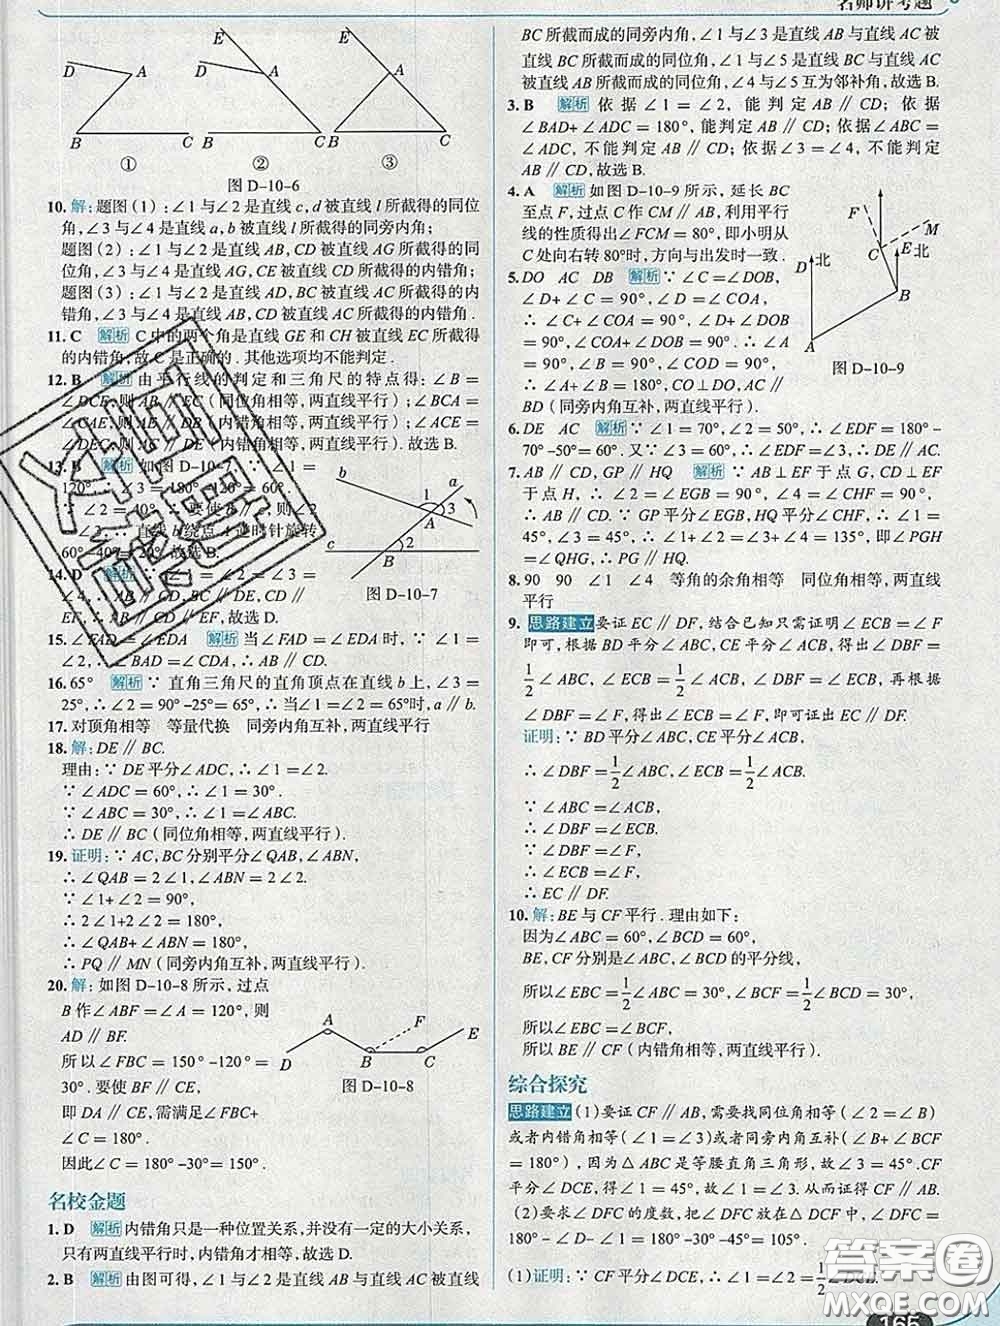 名师讲考题
E
D
A
B
C
①
E
D
A
B
C
②
E
D
A
B
C
③
图 D-10-6
10. 解:题图(1):∠1与∠2是直线c,d被直线l所截得的同位
角,∠3与∠4是直线a,b被直线l所截得的同旁内角;
题图(2):∠1与∠2是直线AB,CD被直线AG所截得的同
位角,∠3与∠4是直线AG,CE被直线CD所截得的内错角;
题图(3):∠1与∠2是直线AD,BC被直线AC所截得的内
错角,∠3与∠4是直线AB,CD被直线AC所截得的内错角.
11. C 解析 C中的两个角是直线GE和CH被直线EC所截得
的内错角,故C是正确的.其他选项均不能判定.
12. B 解析 由平行线的判定和三角尺的特点得:∠B=
∠DCE,则AB∥EC(同位角相等,两直线平行);∠BCA=
∠CAE,则AE∥DB(内错角相等,两直线平行);∠ACE=
∠DEC,则AC∥DE(内错角相等,两直线平行).故选B.
13. B 解析 如图D-10-7,∵∠1=
120°,∴∠3=180°-120°=60°.
∵∠2=40°,∴要使b∥,则∠2
∴直线b绕点A逆时针旋转
60°-40°=20°.故选B.
b
a
1
3
A
2
c
图 D-10-7
14. D 解析 ∵∠1=∠2=∠3=
∠4,∴AB∥CD,BC∥DE,CD∥
EF,∴AB∥CD∥EF,故选D.
15. ∠FAD=∠EDA 解析 当∠FAD=∠EDA时,∵∠1=
∠2,∴∠BAD=∠CDA,∴AB∥CD.
16. 65° 解析 ∵直角三角尺的直角顶点在直线b上,∠3=
25°,∴∠2=90°-25°=65°,∴当∠1=∠2=65°时,a∥b.
17. 对顶角相等 等量代换 同旁内角互补,两直线平行
18. 解:DE∥BC.
理由:∵DE平分∠ADC,∴∠1=∠2.
∵∠ADC=60°,∴∠1=30°.
∵∠ABC=30°,∴∠1=∠ABC.
∴DE∥BC(同位角相等,两直线平行).
19. 证明:∵AC,BC分别平分∠QAB,∠ABN,
∴∠QAB=2∠1,∠ABN=2∠2.
∵∠1+∠2=90°,
∴2∠1+2∠2=180°,
∴∠QAB+∠ABN=180°,
∴PQ∥MN(同旁内角互补,两直线平行).
20. 解:如图D-10-8所示,过点
B作∠ABF=∠A=120°,则
AD∥BF.
所以∠FBC=150°-120°=
30°.要使BF∥CE,
即DA∥CE,需满足∠FBC+
∠C=180°.
因此∠C=180°-30°=150°.
A
D
B
F
C
E
图 D-10-8
名校金题
1. D 解析 内错角只是一种位置关系,并没有一定的大小关系,
只有两直线平行时,内错角才相等.故选D.
2. B 解析 由图可得,∠1与∠2是直线AB与直线AC被直线
BC所截而成的同旁内角,∠1与∠3是直线AB与直线AC被
直线BC所截而成的同位角,∠1与∠5是直线BC与直线AC
被直线AB所截而成的同位角,∠4与∠5互为邻补角,故选B.
3. B 解析 依据∠1=∠2,能判定AB∥CD;依据
∠BAD+∠ADC=180°,能判定AB∥CD;依据∠ABC=
∠ADC,不能判定AB∥CD;依据∠3=∠4,不能判定
AB∥CD,故选B.
4. A 解析 如图D-10-9所示,延长BC
至点F,过点C作CM∥AB,利用平行
线的性质得出∠FCM=80°,即小明从
C处向右转80°时,方向与出发时一致.
F
M
E
北
C
北
D
B
A
图 D-10-9
5. DO AC DB 解析 ∵∠C=∠DOB,
∠D+∠C=90°,∠D=∠COA,
∴∠C+∠COA=90°,
∠COA+∠DOB=90°,
∴∠A=∠B=90°,∠COD=90°,
∴∠A+∠B=180°,CO⊥DO,AC∥
BD(同旁内角互补,两直线平行).
6. DE AC 解析 ∵∠1=70°,∠2=50°,∴∠EDF=180°-
70°-50°=60°.又∵∠3=60°,∴∠EDF=∠3,∴DE∥AC.
7. AB∥CD,GP∥HQ 解析 ∵AB⊥EF于点G,CD⊥EF
于点H,∴∠2=∠EGB=90°,∠4=∠CHF=90°,∴AB∥
CD.∵GP平分∠EGB,HQ平分∠CHF,∴∠1=
45°,∠3=45°,∴∠1+∠2=∠3+∠4=135°,即∠PGH
=∠QHG,∴PG∥HQ.
8. 90 90 ∠1 ∠4 等角的余角相等 同位角相等,两直线
平行
9. 思路建立 要证EC∥DF,结合已知只需证明∠ECB=∠F
即可,根据BD平分∠ABC,CE平分∠ACB,得出∠DBF=
1/2∠ABC,∠ECB=1/2∠ACB,∠DBF=∠ECB,再根据
∠DBF=∠F,得出∠ECB=∠F,即可证出EC∥DF.
证明:∵BD平分∠ABC,CE平分∠ACB,
∴∠DBF=1/2∠ABC,∠ECB=1/2∠ACB,
∵∠ABC=∠ACB,
∴∠DBF=∠ECB.
∵∠DBF=∠F,
∴∠ECB=∠F,
∴EC∥DF.
10. 解:BE与CF平行.理由如下:
因为∠ABC=60°,∠BCD=60°,
BE,CF分别是∠ABC,∠BCD的平分线,
所以∠EBC=1/2∠ABC=30°,∠BCF=1/2∠BCD=30°,
所以∠EBC=∠BCF,
所以BE∥CF(内错角相等,两直线平行).
综合探究
思路建立 (1)要证CF∥AB,需要找同位角相等(∠2=∠B)
或者内错角相等(∠1=∠3)或者同旁内角互补(∠B+∠BCF
=180°),因为△ABC是等腰直角三角形,故∠3=45°,CF平
分∠DCE,得∠1=45°,故∠1=∠3.从而证得CF∥AB.
(2)要求∠DFC的度数,把∠DFC放在△DCF中,∠DFC=
180°-∠D-∠1=180°-30°-45°=105°.
(1)证明:∵CF平分∠DCE,∴∠1=∠2=1/2∠DCE.
答案圈
MXQE.COM
165